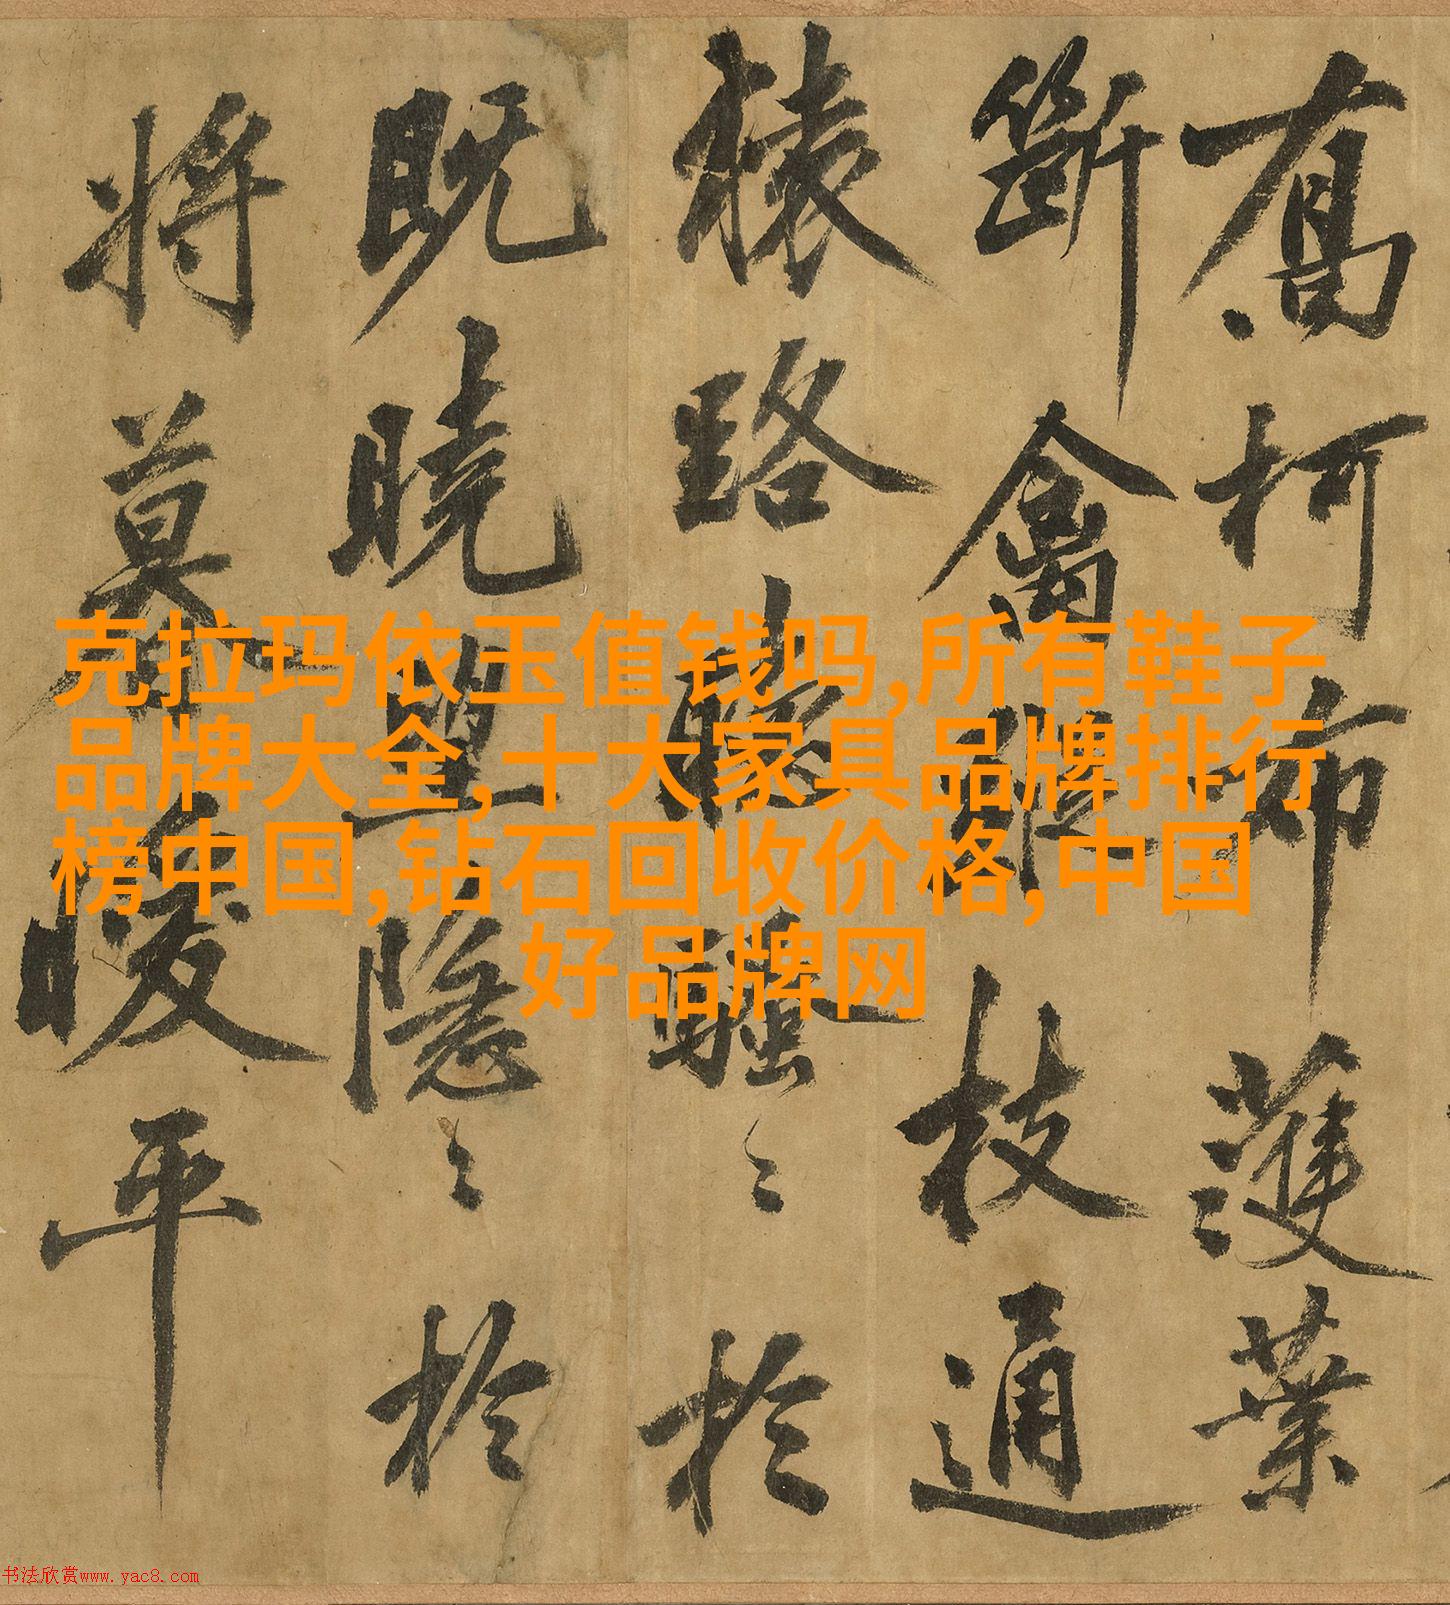 克拉玛依玉值钱吗,所有鞋子
品牌大全,十大家具品牌排行
榜中国,钻石回收价格,中国
好品牌网
柯布護葉
斷禽枝通
猿路於
既曉隱〻於
將暖平
书法欣赏www.yac8.com